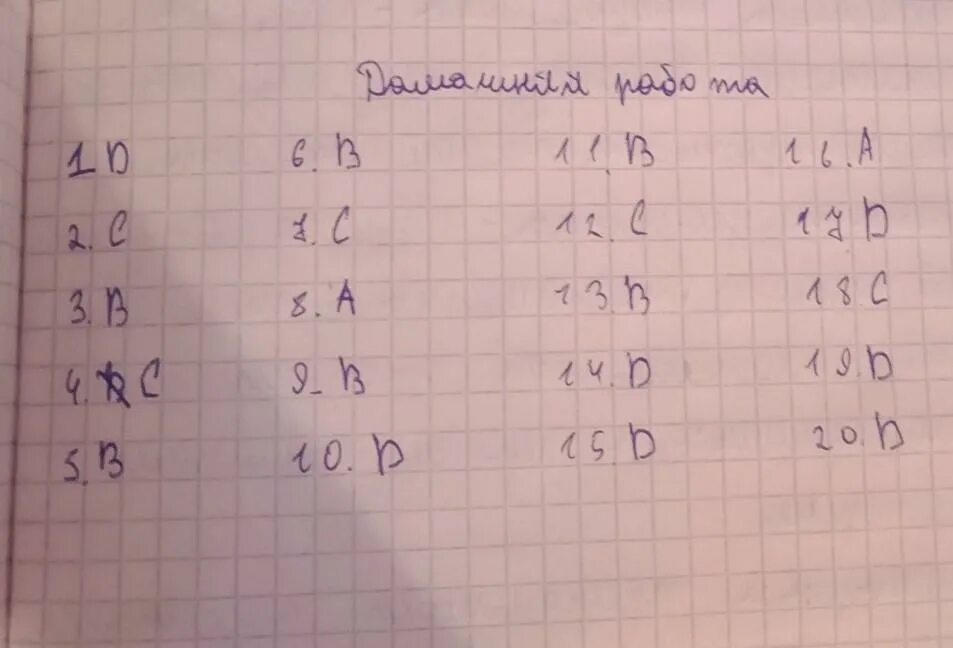 Домашняя работа
1 D 6. B 11. B 16. A
2. C 7. C 12. C 17 D
3. B 8. A 13. B 18 C
4. C 9. B 14. D 19. D
5. B 10. D 15. D 20. D